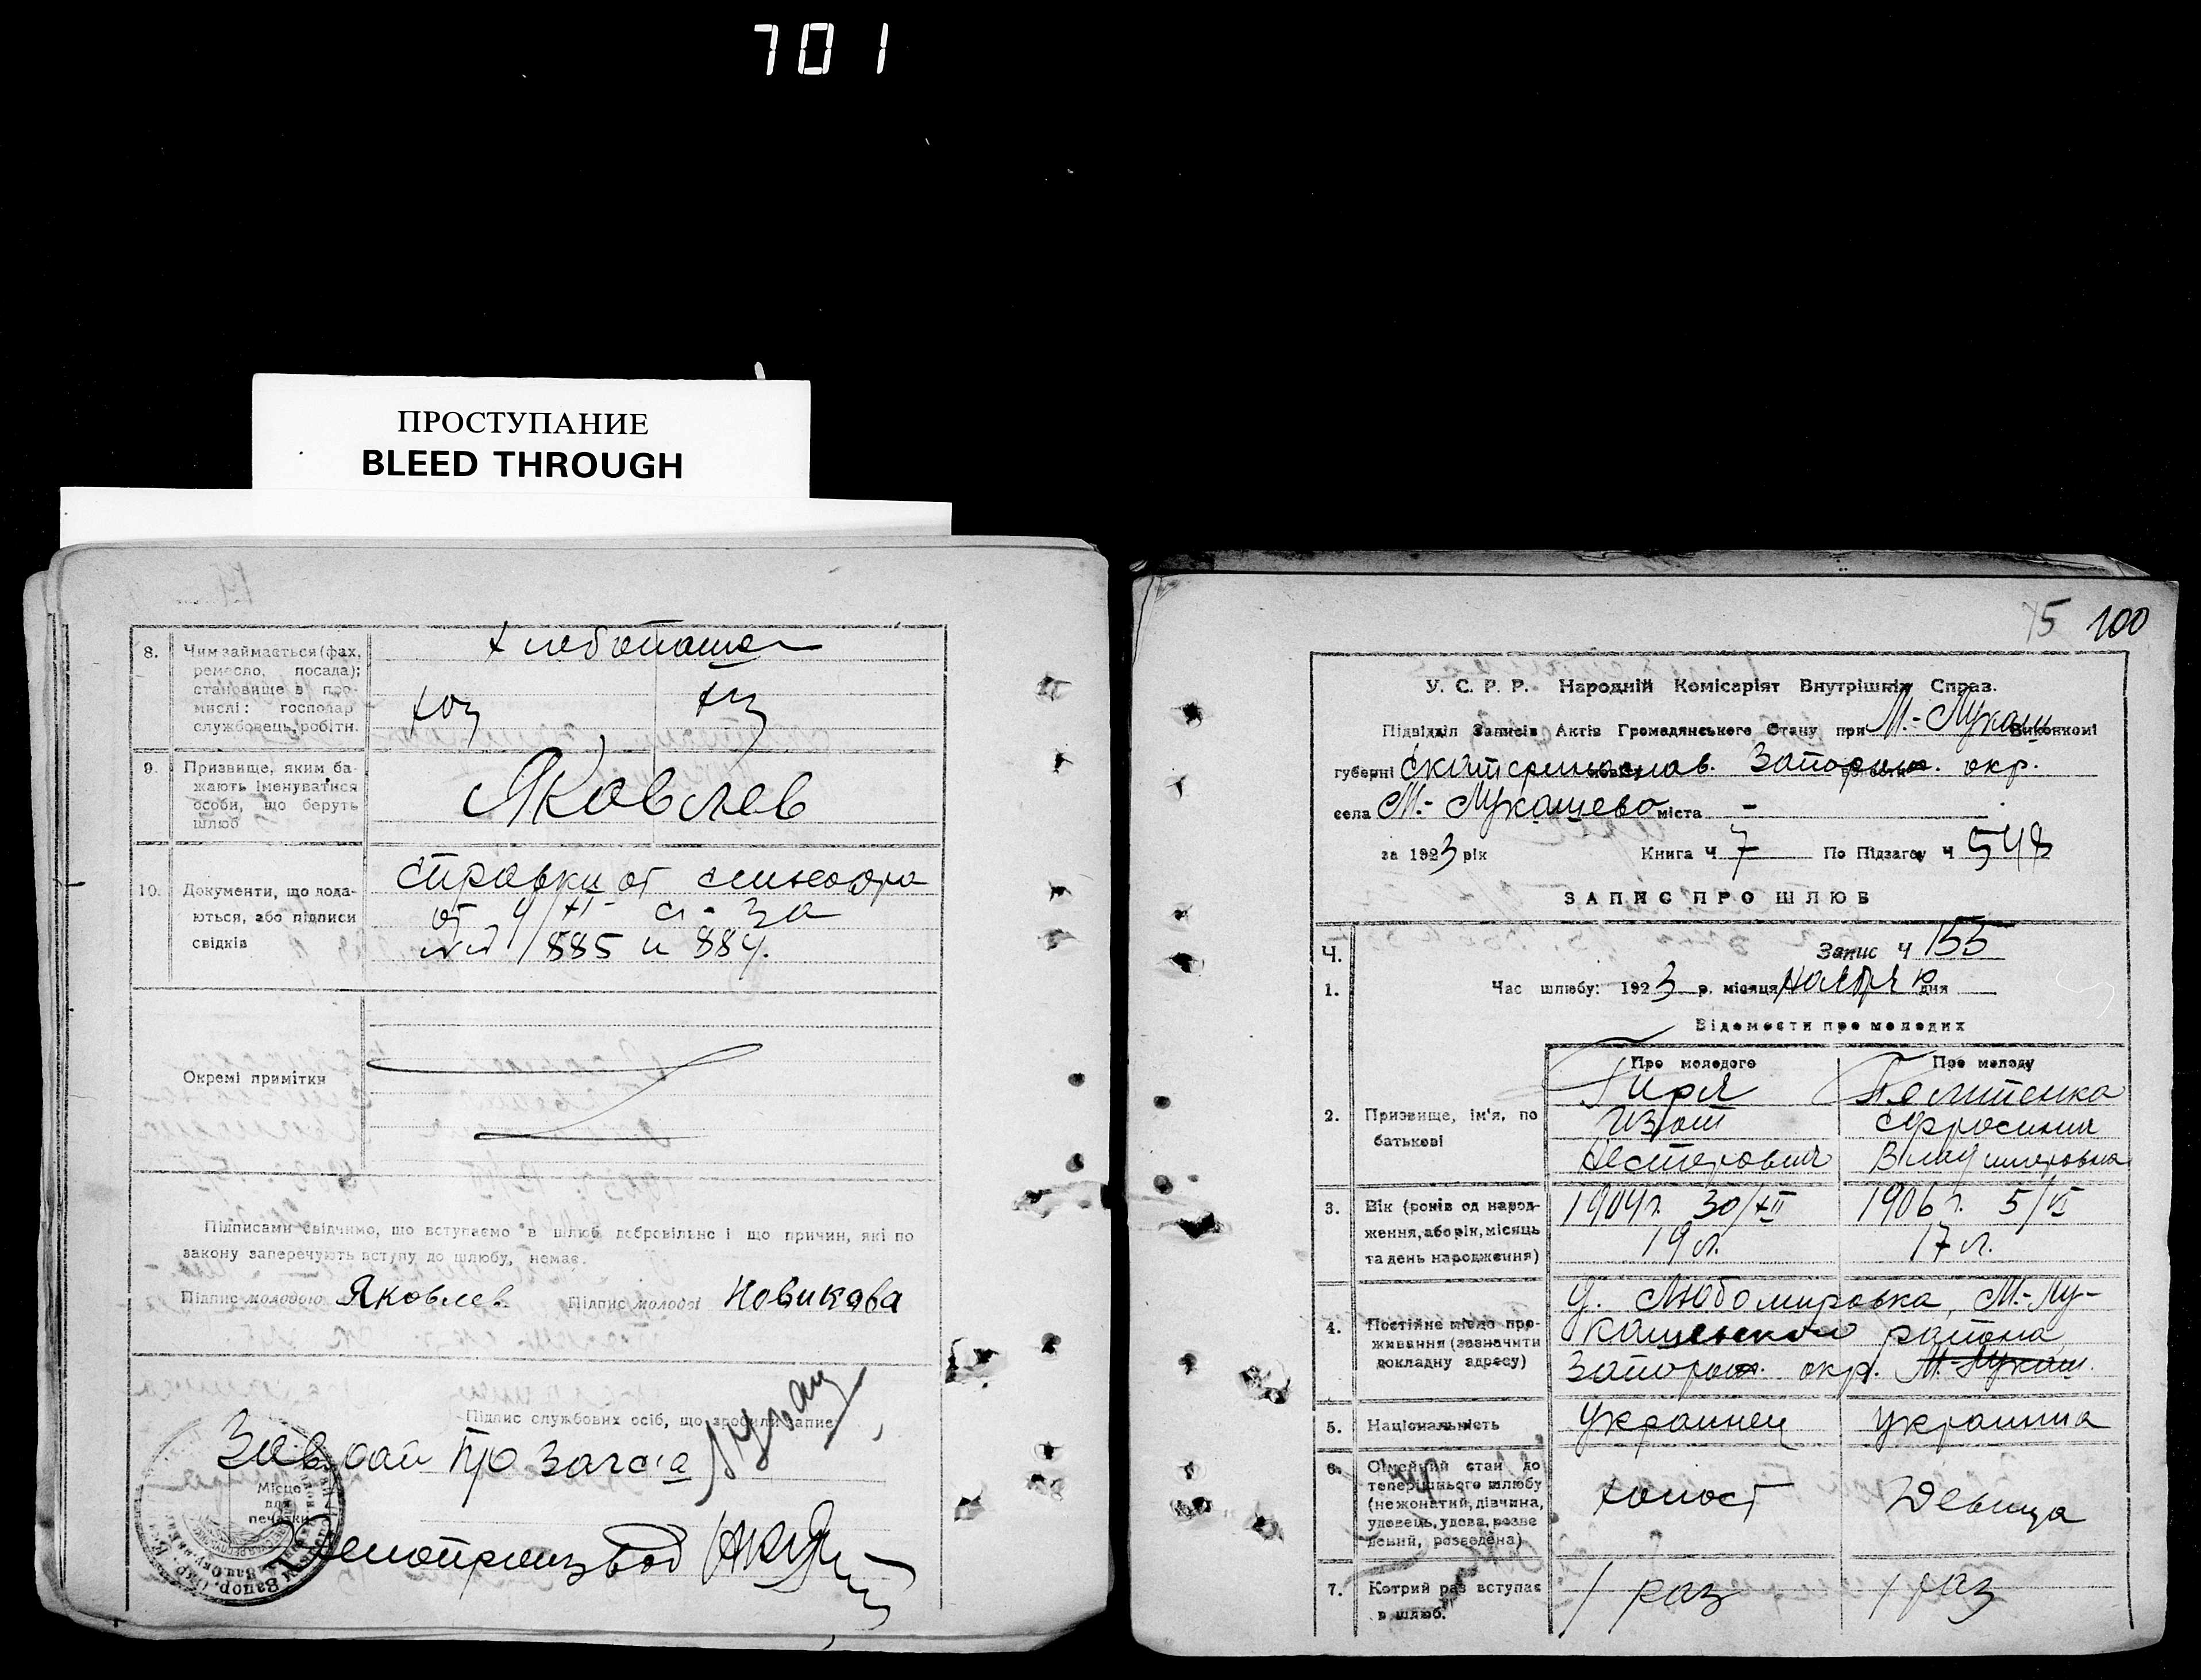 701
ПРОСТУПАНИЕ
BLEED THROUGH
8. Чим займається (фах, ремесло, посада); становище в промислі: господар службовець, робітн.
хлебопаше
хоз
хоз
9. Призвище, яким бажають іменуватися особи, що беруть шлюб
Яковлев
10. Документи, що додаються, або підписи свідків
справки от
от 4/XI с-за
885 и 884.
Окремі примітки
Підписами свідчимо, що вступаємо в шлюб добровільно і що причин, які по
закону заперечують вступу до шлюбу, немає.
Підпис молодого Яковлев. Підпис молодої Новикова
Підпис службових осіб, що зробили запис
Зав загса
Місце для печатки
Делопроизвод
75 100
У. С. Р. Р. Народній Комісаріят Внутрішніх Справ.
Підвідділ Записів Актів Громадянського Стану при М.-Лукаш Виконкомі
губерні Екатеринослав. Запорож. окр.
села М.-Лукашево міста -
за 1923 рік Книга Ч 7 По Підзагсу Ч 548
ЗАПИС ПРО ШЛЮБ
Ч. Запис Ч 155
1. Час шлюбу: 1923 р. місяця Ноября дня
Відомости про молодих
Про молодого Про молоду
2. Призвище, ім'я, по батькові
Гиря
Изот
Нестерович
Ефросиния
Владимировна
3. Вік (років од народження, або рік, місяць та день народження)
1904 г. 30/XII 1906 г. 5/VI
19 л. 17 л.
4. Постійне місце проживання (зазначити докладну адресу)
д. Любомировка, М.-Лу-
кашевского района
Запорож. окр. М.-Лукаш.
5. Національність Украинец Украинка
6. Сімейний стан до теперішнього шлюбу (нежонатий, дівчина, удовець, удова, розведений, розведена)
холост Девица
7. Котрий раз вступає в шлюб.
1 раз 1 раз